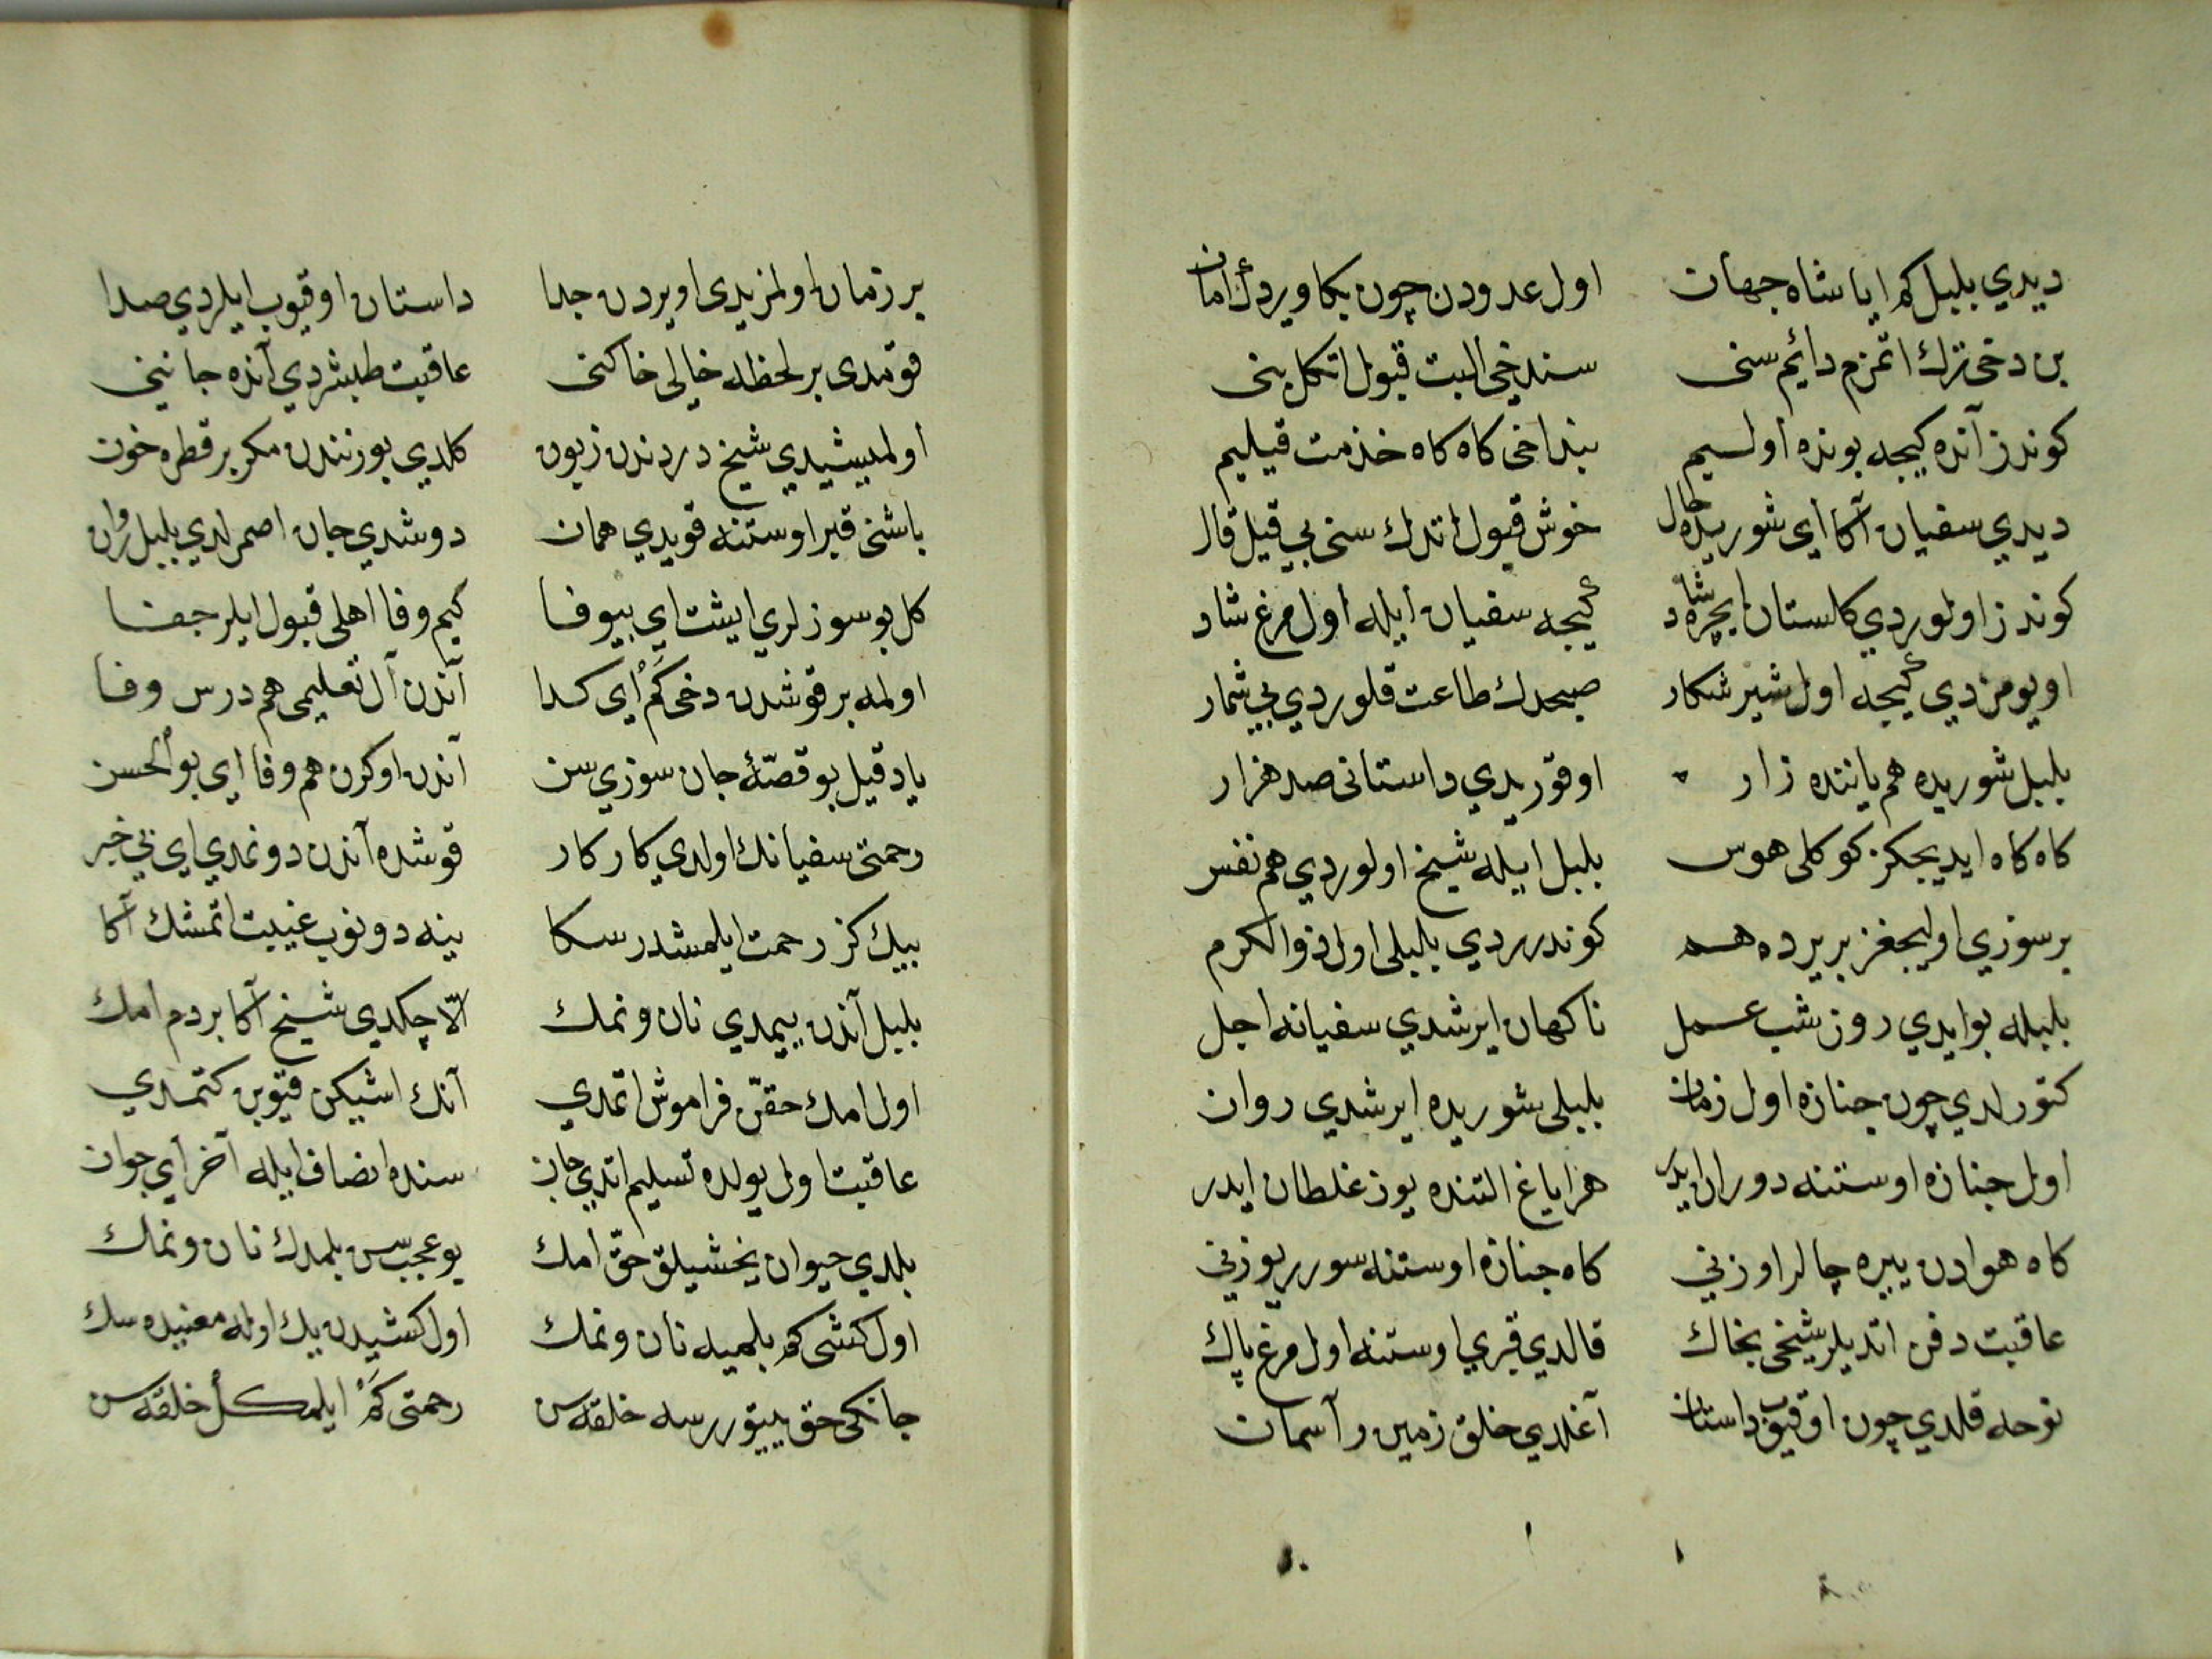 ديدي بلبل كم ايا شاه جهان اول عدودن چون بكا ويردك امان
بن دخی ترك اتمزم دائم سنی سندخی البت قبول اتكل بنی
كوندز آنده كيجه بونده اولسيم بنداخی كاه كاه خذمت قيليم
ديدي سفيان آكا أي شوريده حال خوش قبول اتدك سنی بی قيل قال
كوندز اولوردي كلستان ايچره شاد كيجه سفيان ايله اول مرغ شاد
اويومزدي كيجه اول شير شكار صبحدك طاعت قلوردي بی شمار
بلبل شوريده هم ياننده زار اوقوريدي داستانی صد هزار
كاه كاه ايديجكز كوكلی هوس بلبل ايله شيخ اولوردي هم نفس
بر سوزي اوليجغز بر يرده هم كوندرردي بلبلی اول ذوالكرم
بلبله بوايدي روز شب عمل ناكهان ايرشدي سفيانه اجل
كتورلدي چون جنازه اول زمان بلبلی شوريده ايرشدي روان
اول جنازه اوستنه دوران ايدر هر اياغ التنده يوز غلطان ايدر
كاه هوادن ييره چالر اوزنی كاه جنازه اوستنه سورر يوزنی
عاقبت دفن اتديلر شيخی بخاك قالدي قبري اوستنه اول مرغ پاك
نوحه قلدي چون اوقيوب داستان آغلدي خلق زمين و آسمان
بر زمان اولمزيدی اويردن جدا داستان اوقيوب ايلردي صدا
قومدی بر لحظه خالی خاكنی عاقبت طبشردي آنده جاننی
أولمبيشيدي شيخ دردندن زبون كلدي بورنندن مكر بر قطره خون
باشنی قبر اوستنه قويدي همان دوشدي جان اصمرلدي بلبل روان
كل بو سوزلري ايشت اي بيوفا كيم وفا اهلی قبول ايلر جفا
اولمه بر قوشدن دخی كم أي كدا آندن آل تعليمی هم درس وفا
ياد قيل بو قصّۀ جان سوزي سن آندن اوكرن هم وفا اي بو الحسن
رحمتی سفيانك اولدي كاركار قوشده آندن دونمدي اي بی خبر
بيك كز رحمت ايلمشدر سكا ينه دونوب غيبت اتمشك آكا
بلبل آندن ييمدي نان ونمك الّا چكدي شيخ آكا بردم امك
اول امك حقّن فراموش اتمدي آنك اشيكن قيوبن كتمدي
عاقبت اول يولده تسليم اتدي جان سنده انصاف ايله آخر اي جوان
بلدي حيوان يخشيلق حقّ امك بو عجب سن بلمدك نان ونمك
اول كشی كم بلميه نان ونمك اول كشيدن يك اوله معنيده سك
جانكی حق ييتوررسه خلقه سن رحمتی كم ايلمكل خلقه سن